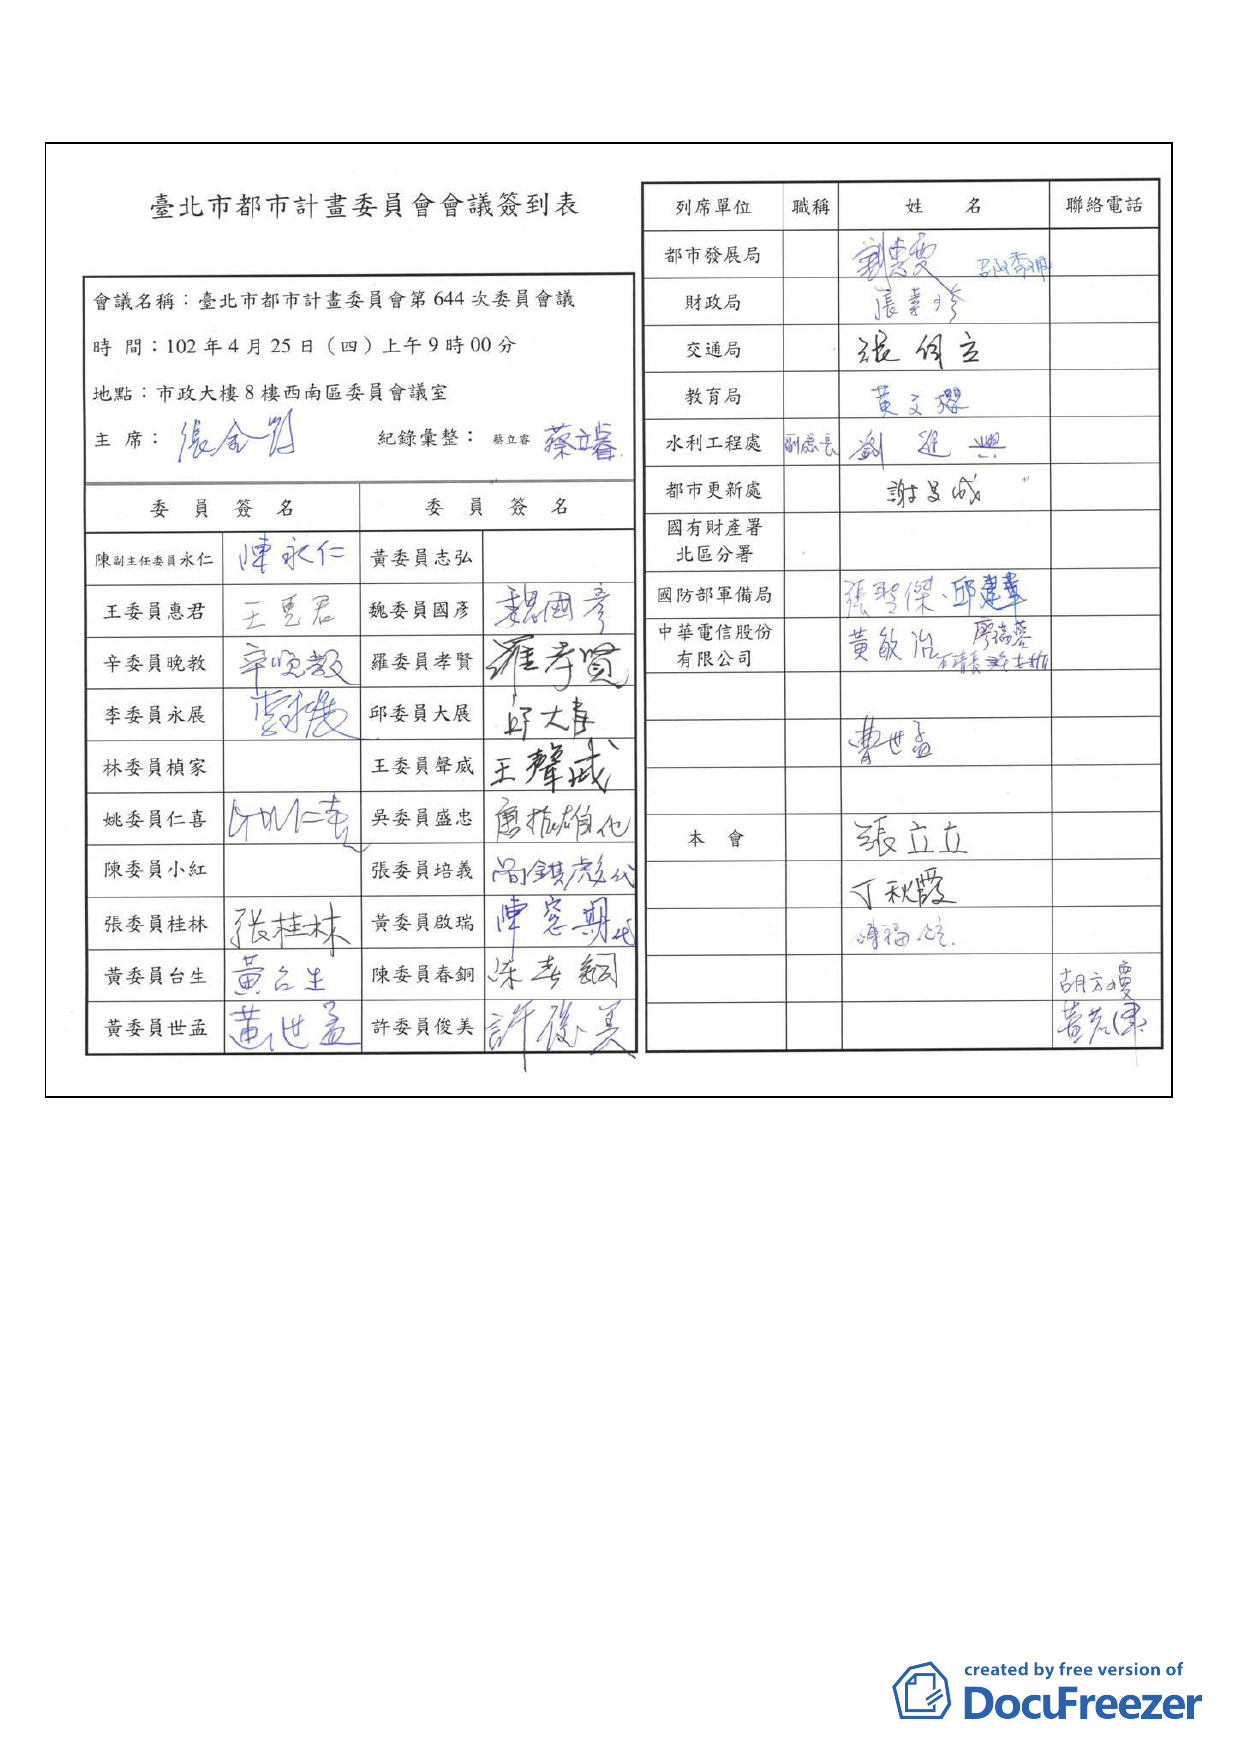 臺北市都市計畫委員會會議簽到表
會議名稱：臺北市都市計畫委員會第 644 次委員會議
時 間：102 年 4 月 25 日（四）上午 9 時 00 分
地點：市政大樓 8 樓西南區委員會議室
主 席： 紀錄彙整： 蔡立睿 蔡立睿
委 員 簽 名 委 員 簽 名
陳副主任委員永仁 陳永仁 黃委員志弘
王委員惠君 王惠君 魏委員國彥 魏國彥
辛委員晚教 辛晚教 羅委員孝賢 羅孝賢
李委員永展 李永展 邱委員大展 邱大展
林委員楨家 王委員聲威 王聲威
姚委員仁喜 姚仁喜 吳委員盛忠 代
陳委員小紅 張委員培義 代
張委員桂林 張桂林 黃委員啟瑞 陳 期代
黃委員台生 黃台生 陳委員春銅 陳春銅
黃委員世孟 黃世孟 許委員俊美 許俊美
列席單位 職稱 姓 名 聯絡電話
都市發展局 劉惠雯
財政局
交通局
教育局 黃文櫻
水利工程處 副處長 劉進興
都市更新處
國有財產署
北區分署
國防部軍備局
中華電信股份
有限公司 黃敏治
曹世孟
本 會 張立立
丁秋霞
胡方瓊
created by free version of
DocuFreezer